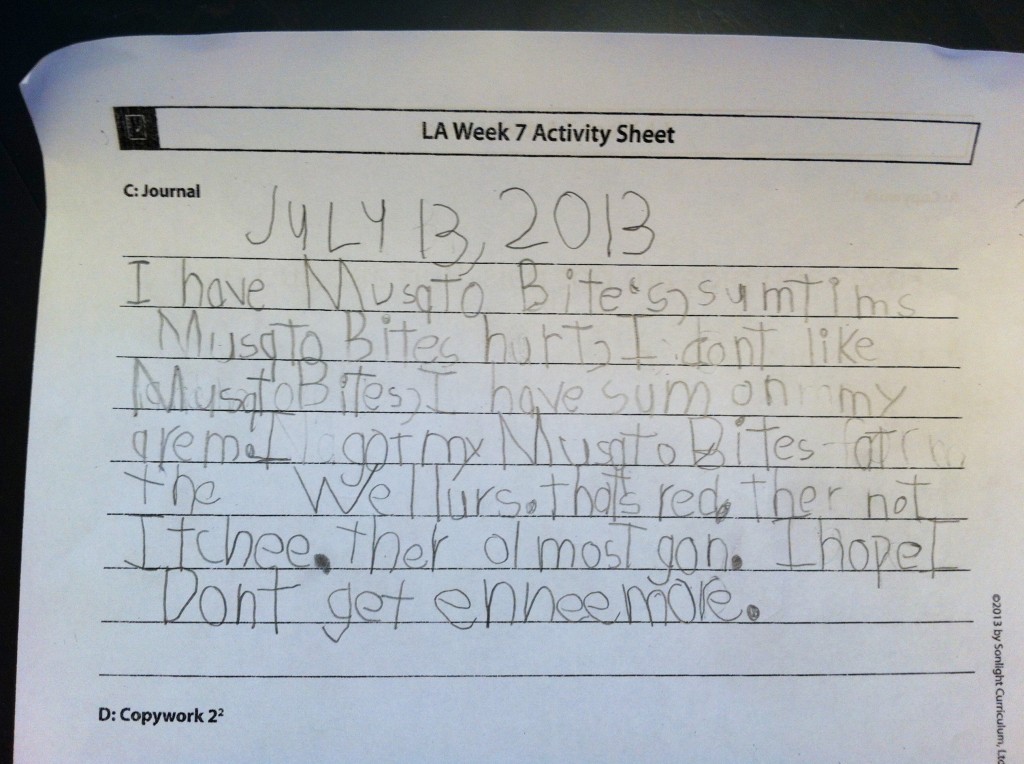 LA Week 7 Activity Sheet
C: Journal
JULY 13, 2013
I have Musqto Bite's, sumtims
Musqto Bites hurt, I dont like
Musqto Bites, I have sum on my
arem. I got my Musqto Bites at
the Wellurs. thats red. Ther not
Itchee. Ther olmost gon. I hope I
Dont get enneemore.
D: Copywork 2²
©2013 by Sonlight Curriculum, Ltd